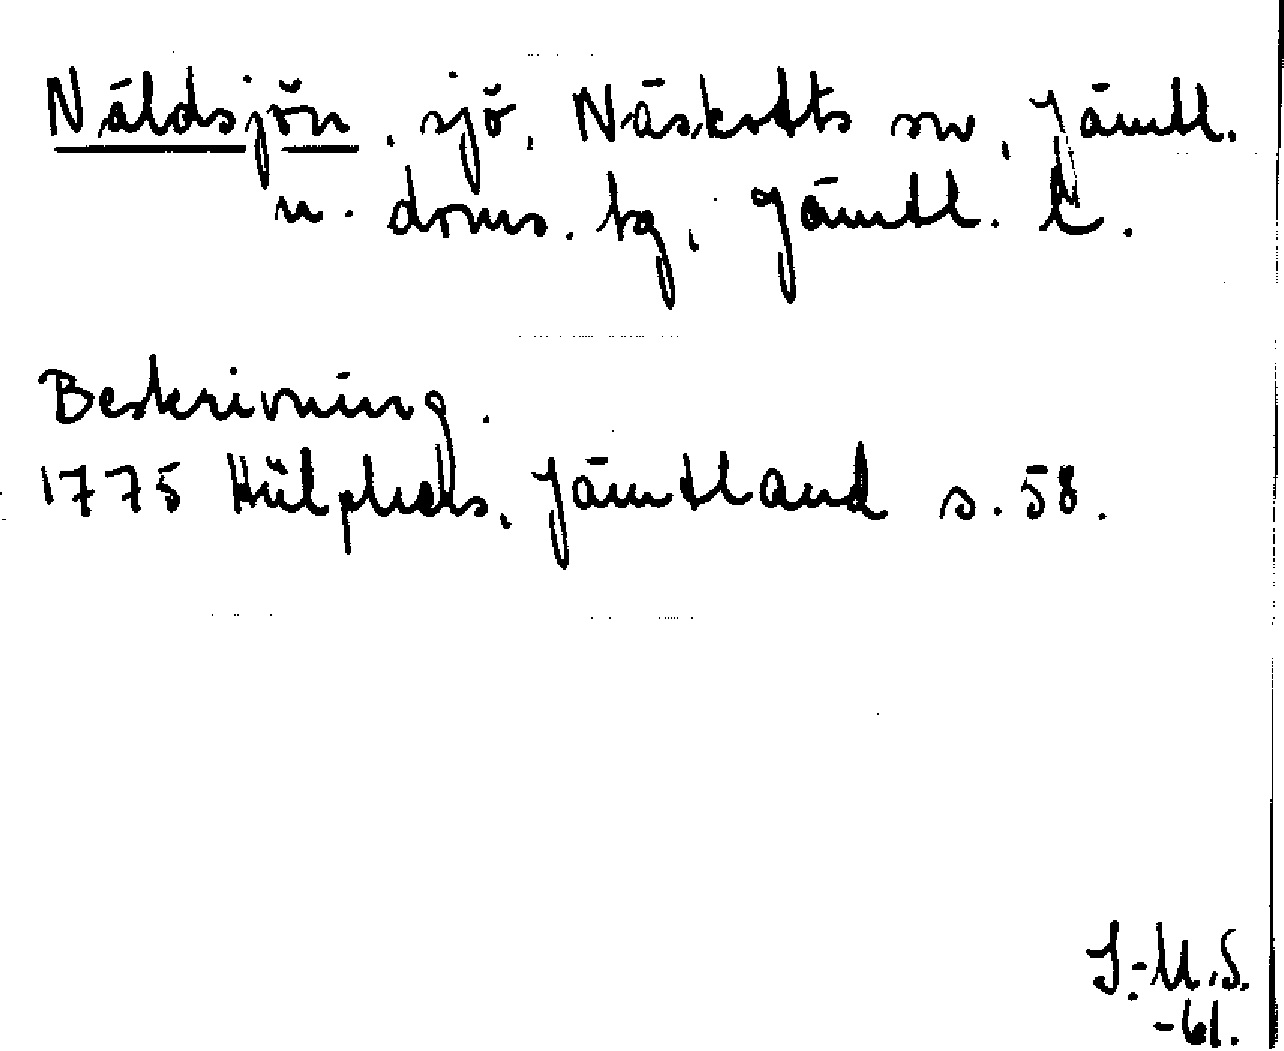 Näldsjön, sjö, Näskotts sn, Jämtl.
n. doms. tg, Jämtl. L.
Beskrivning.
1775 Hülphers, Jämtland s. 58.
I.-M.S.
-61.